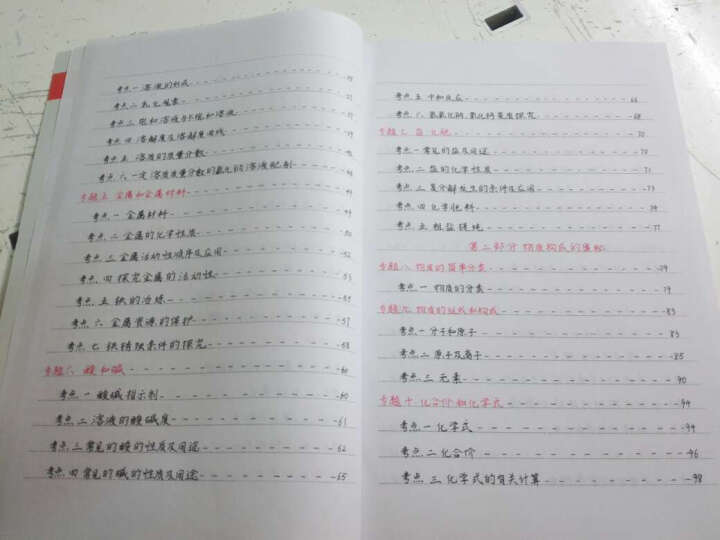 考点一 溶液的形成
考点二 乳化现象
考点三 饱和溶液与不饱和溶液
考点四 溶解度及溶解度曲线
考点五 溶质的质量分数
考点六 一定溶质质量分数的氯化钠溶液配制
专题五 金属和金属材料
考点一 金属材料
考点二 金属的化学性质
考点三 金属活动性顺序及应用
考点四 探究金属的活动性
考点五 铁的冶炼
考点六 金属资源的保护 57
考点七 铁锈蚀条件的探究 58
专题六 酸和碱 60
考点一 酸碱指示剂 60
考点二 溶液的酸碱度 61
考点三 常见的酸的性质及用途 62
考点四 常见的碱的性质及用途 65
考点五 中和反应 66
考点六 氢氧化钠、氧化钙变质探究 68
专题七 盐 化肥 70
考点一 常见的盐及用途 70
考点二 盐的化学性质 71
考点三 复分解发生的条件及应用 73
考点四 化学肥料 74
考点五 粗盐提纯 77
第二部分 物质构成的奥秘
专题八 物质的简单分类 79
考点一 物质的分类 79
专题九 物质的组成和构成 83
考点一 分子和原子 83
考点二 原子及离子 85
考点三 元素 90
专题十 化合价和化学式 94
考点一 化学式 94
考点二 化合价 96
考点三 化学式的有关计算 98